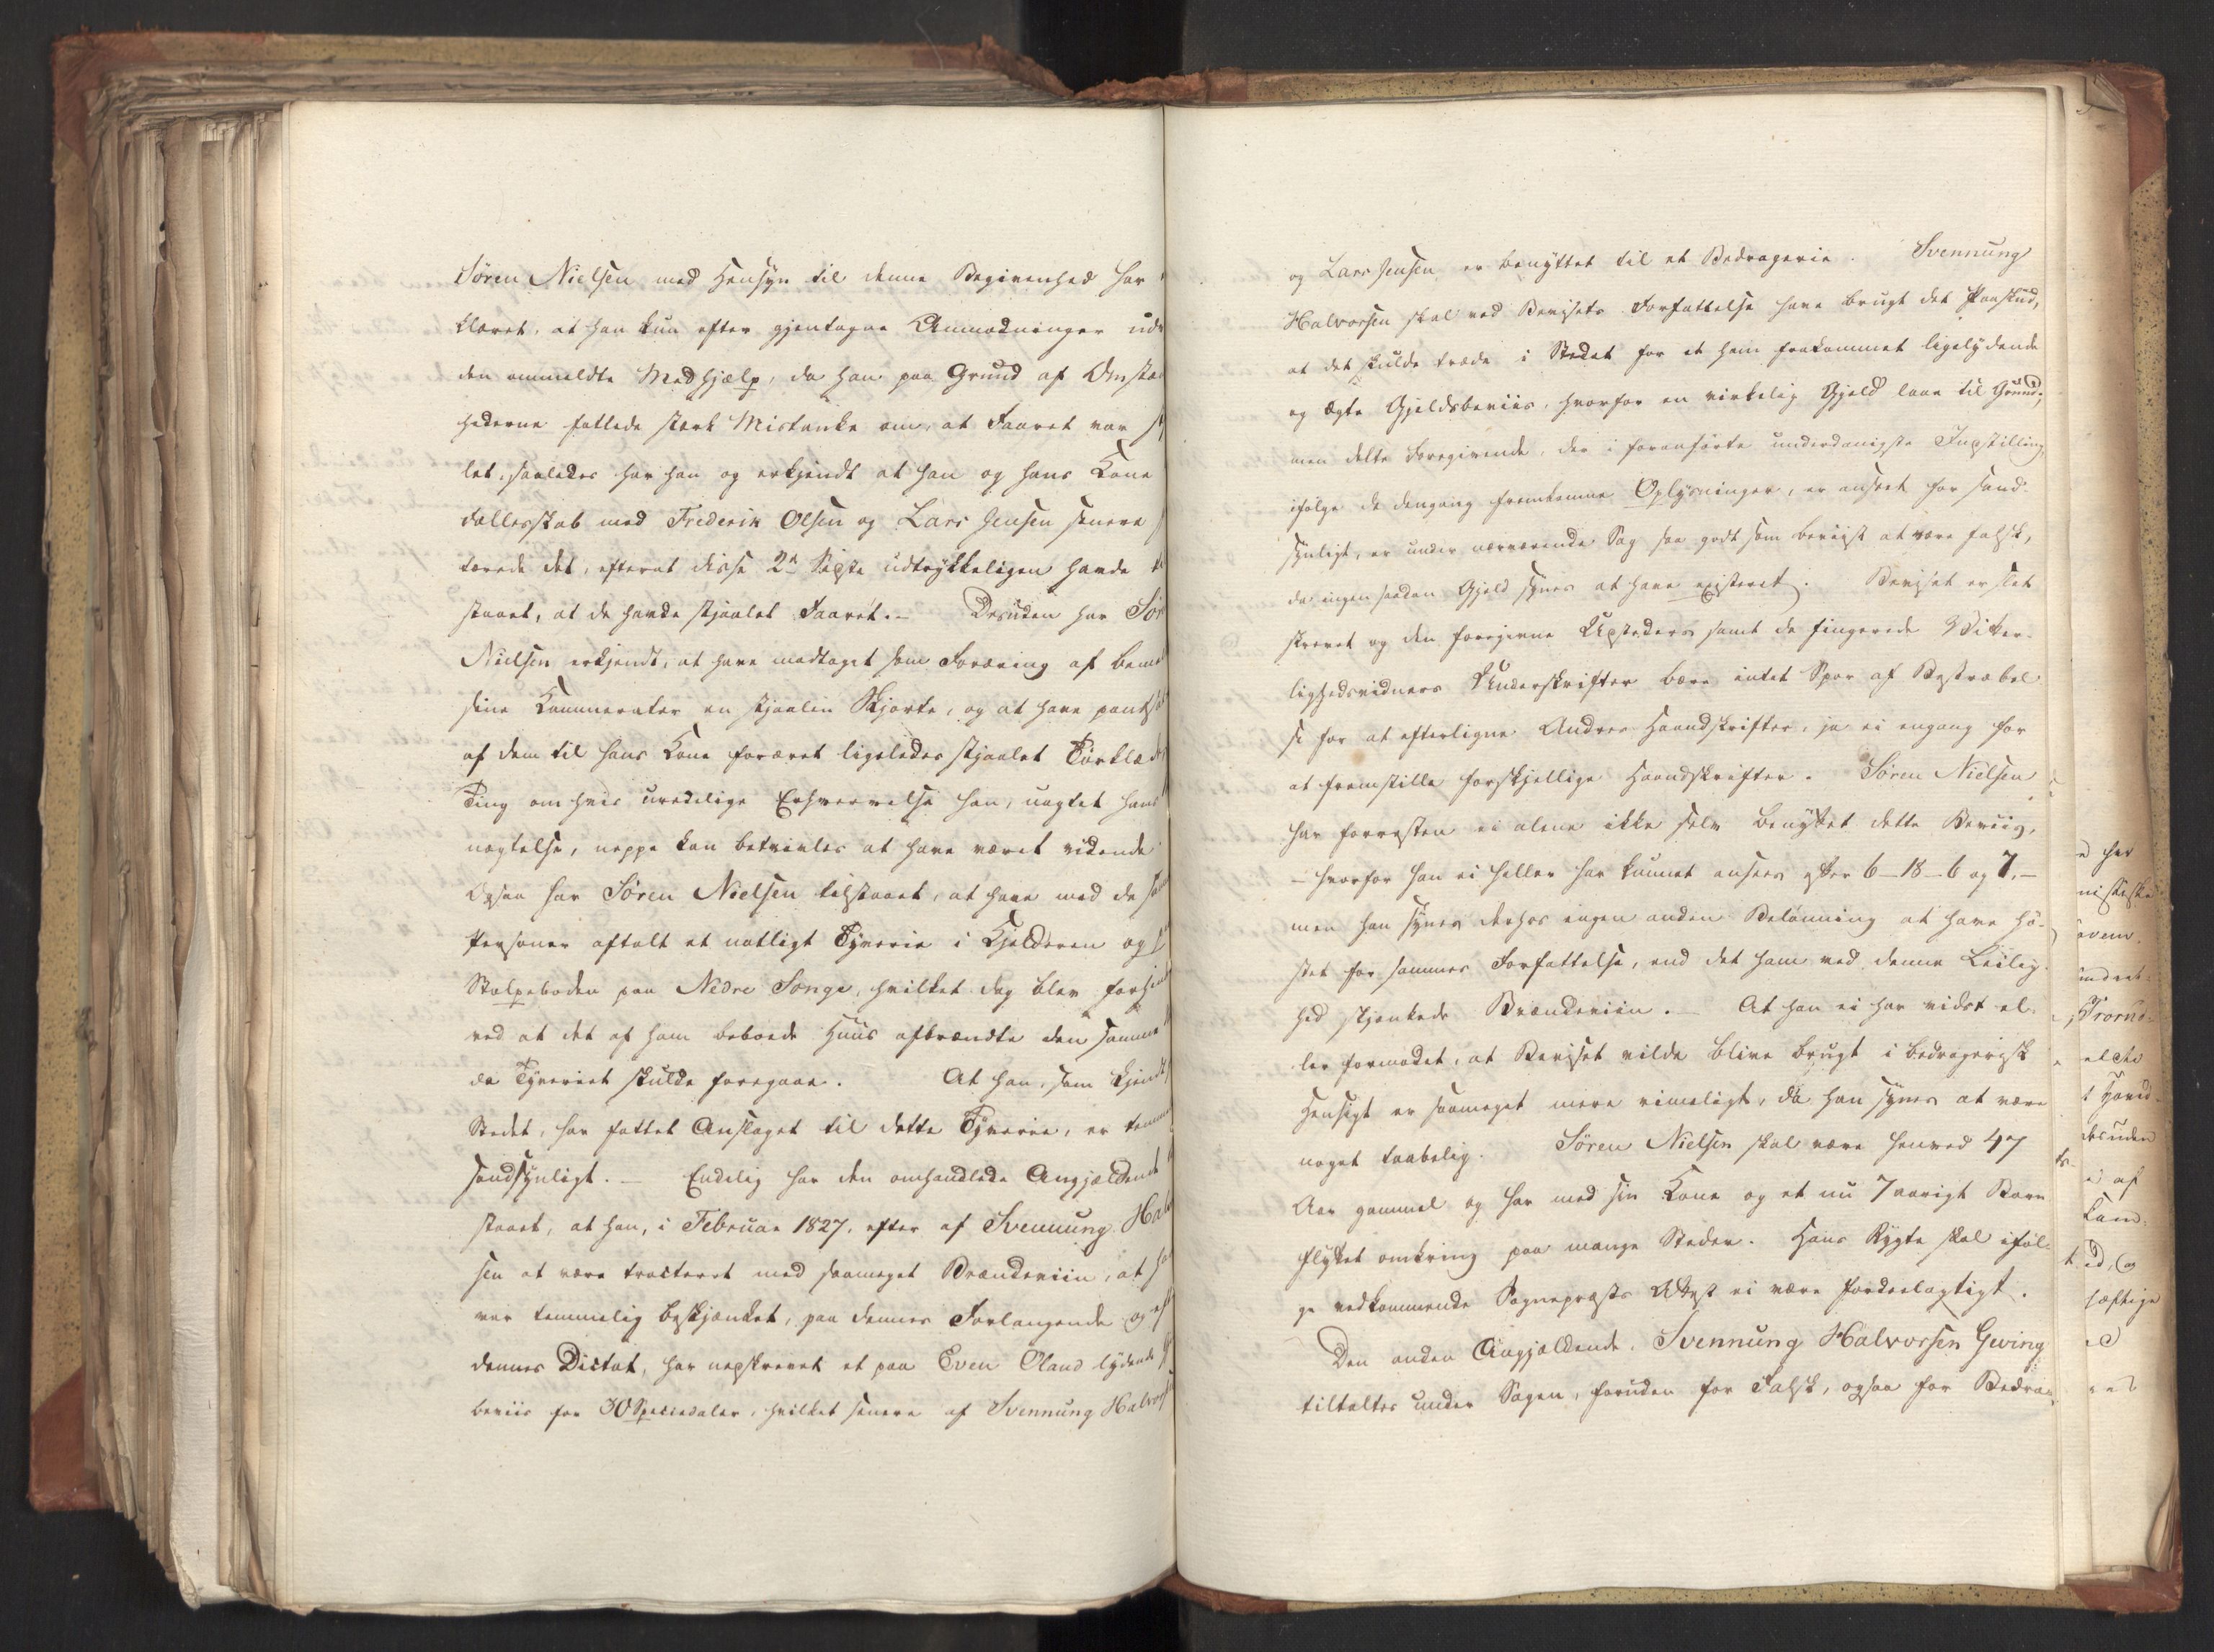 Søren Nielsen med Hensyn til denne Begivenhed har
klaret, at han kun efter gjentagne Anmodninger
den ommeldte Medhjælp, da han paa Grund af
hederne fattede stærk Mistanke om, at Faaret var
let, saaledes har han og erkjendt at han og hans Kone
Fællesskab med Frederik Olsen og Lars Jensen senere
tærede det, efterat disse 2de Sidste udtrykkeligen havde
staaet, at de havde stjaalet Faaret. – Desuden har
Nielsen erkjendt, at have modtaget som Foræring af
sine Kammerater en stjaalen Skjorte, og at have
af dem til hans Kone foræret ligeledes stjaalet
Ting om hvis uredelige Erhvervelse han, uagtet hans
nægtelse, neppe kan betvivles at have været vidende
Ogsaa har Søren Nielsen tilstaaet, at have med de
Personer aftalt et natligt Tyverie i Kjelderen og
Stolpeboden paa Nedre Songe, hvilket dog blev
ved at det af ham beboede Huus afbrændte den samme
da Tyveriet skulde foregaae. At han, som kjendt
Stedet, har fattet Anslaget til dette Tyverie, er
sandsynligt. – Endelig har den omhandlede Angjældende
staaet, at han, i Februar 1827, efter af Svennung
sen at være tracteret med saameget Brændeviin, at
var temmelig beskjænket, paa dennes Forlangende og
dennes Dictat, har nedskrevet et paa Even Øland lydende
beviis for 30 Speciedaler, hvilket senere af Svennung
og Lars Jensen er benyttet til et Bedragerie. Svennung
Halvorsen skal ved Bevisets Forfattelse have brugt det Paaskud,
at det skulde træde i Stedet for et ham frakommet ligelydende
og ægte Gjeldsbeviis, hvorfor en virkelig Gjeld laae til Grund;
men dette Foregivende, der i foranførte underdanigste Indstilling
ifølge de dengang fremkomne Oplysninger, er anseet for sand-
synligt, er under nærværende Sag saa godt som beviist at være falsk,
da ingen saadan Gjeld synes at have existeret. Beviset er slet
skrevet og den foregivne Udsteders samt de fingerede Vitter-
lighedsvidners Underskrifter bære intet Spor af Bestræbel-
se for at efterligne Andres Haandskrifter, ja ei engang for
at fremstille forskjellige Haandskrifter. Søren Nielsen
har forresten ei alene ikke selv benyttet dette Beviis,
– hvorfor han ei heller har kunnet ansees efter 6–18–6 og 7, –
men han synes derhos ingen anden Belønning at have hø-
stet for sammes Forfattelse, end det ham ved denne Leilig-
hed skjænkede Brændeviin. – At han ei har vidst el-
ler formodet, at Beviset vilde blive brugt i bedragerisk
Hensigt er saameget mere rimeligt, da han synes at være
noget taabelig. Søren Nielsen skal være henved 47
Aar gammel og har med sin Kone og et nu 7 aarigt Barn
flyttet omkring paa mange Steder. Hans Rygte skal iføl-
ge vedkommende Sognepræsts Attest ei være fordeelagtigt.
Den anden Angjældende, Svennung Halvorsen Gjeving
tiltaltes under Sagen, foruden for Falsk, ogsaa for Bedra-